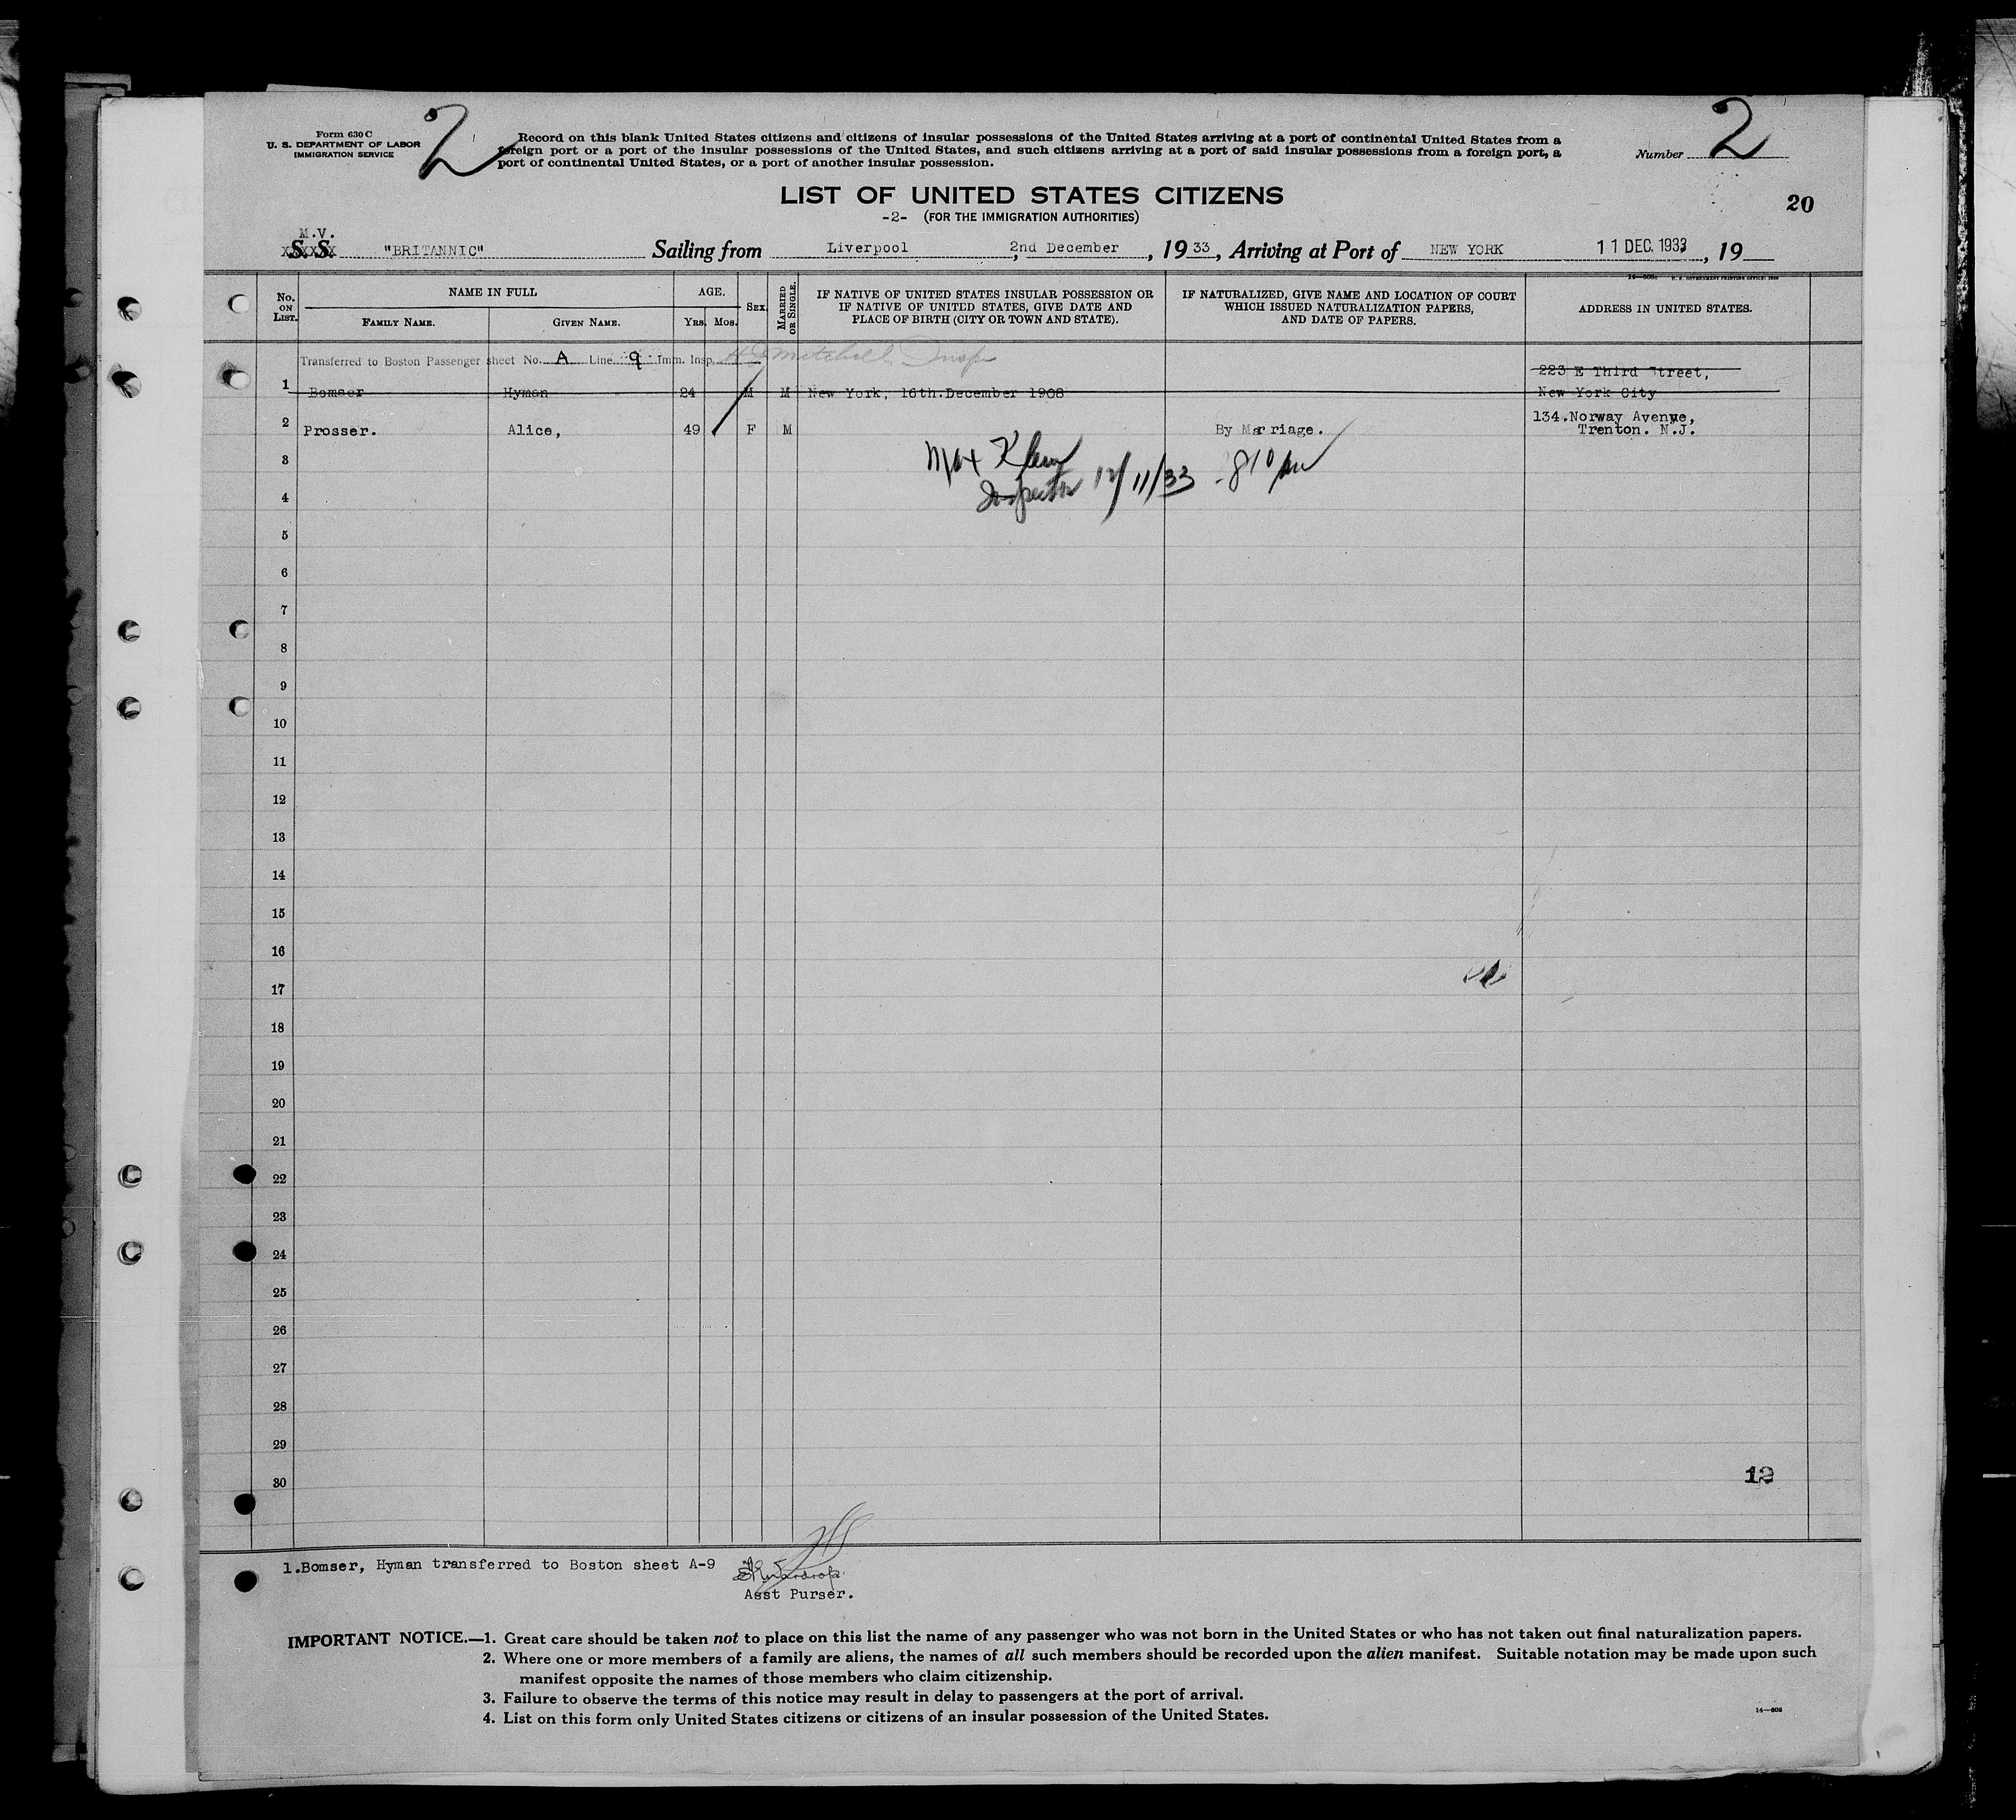 Form 630 C
U. S. DEPARTMENT OF LABOR
IMMIGRATION SERVICE
2
Record on this blank United States citizens and citizens of insular possessions of the United States arriving at a port of continental United States from a
foreign port or a port of the insular possessions of the United States, and such citizens arriving at a port of said insular possessions from a foreign port, a
port of continental United States, or a port of another insular possession.
Number 2
LIST OF UNITED STATES CITIZENS
-2- (FOR THE IMMIGRATION AUTHORITIES)
20
M.V.
S. S. "BRITANNIC" Sailing from Liverpool, 2nd December, 1933, Arriving at Port of NEW YORK 11 DEC. 1933, 19
No. ON LIST.
NAME IN FULL
FAMILY NAME. GIVEN NAME.
AGE.
YRS. MOS.
SEX.
MARRIED OR SINGLE.
IF NATIVE OF UNITED STATES INSULAR POSSESSION OR
IF NATIVE OF UNITED STATES, GIVE DATE AND
PLACE OF BIRTH (CITY OR TOWN AND STATE).
IF NATURALIZED, GIVE NAME AND LOCATION OF COURT
WHICH ISSUED NATURALIZATION PAPERS,
AND DATE OF PAPERS.
ADDRESS IN UNITED STATES.
Transferred to Boston Passenger sheet No. A Line 9 Imm. Insp. Mitchell Insp
223 E Third Street,
1 Bomser Hyman 24 M M New York, 16th.December 1908 New York City
134.Norway Avenue,
2 Prosser. Alice, 49 F M By Marriage. Trenton. N.J.
Max Klein
Inspector 12/11/33 810 pm
3
4
5
6
7
8
9
10
11
12
13
14
15
16
17
18
19
20
21
22
23
24
25
26
27
28
29
30
12
1.Bomser, Hyman transferred to Boston sheet A-9
Asst Purser.
IMPORTANT NOTICE.—1. Great care should be taken not to place on this list the name of any passenger who was not born in the United States or who has not taken out final naturalization papers.
2. Where one or more members of a family are aliens, the names of all such members should be recorded upon the alien manifest. Suitable notation may be made upon such
manifest opposite the names of those members who claim citizenship.
3. Failure to observe the terms of this notice may result in delay to passengers at the port of arrival.
4. List on this form only United States citizens or citizens of an insular possession of the United States.